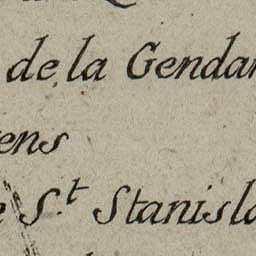 de la Gendar
ens
e S.t Stanisla